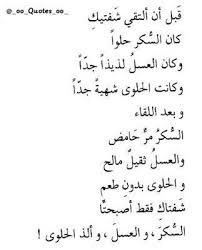 @_oo_Quotes_oo_
قَبل أن ألتقي شَفتيكِ
كان السُكر حلواً
وكان العسلُ لذيذاً جدّاً
وكانت الحلوى شهيةً جدّاً
و بعد اللقاء
السكرُ مرٌّ حَامض
والعسلُ ثقيلٌ مالح
و الحلوى بدونِ طعم
شَفتاكِ فقط أصبحتًا
السكرَ ، و العسلَ ، و ألذ الحلوى !